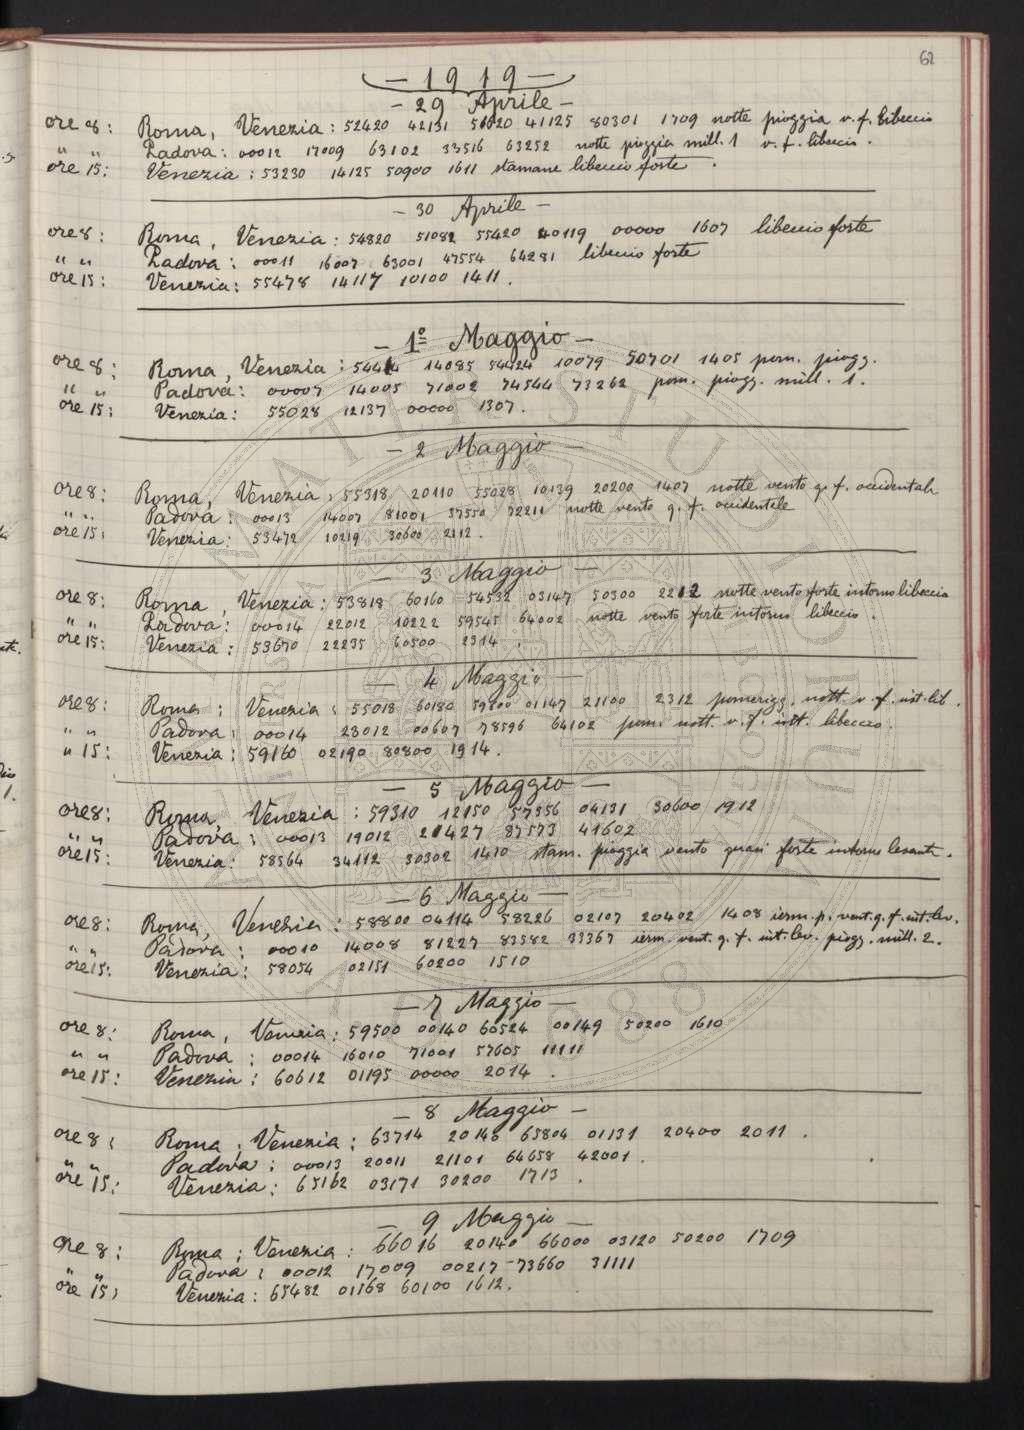 62
— 1919 —
— 29 Aprile —
ore 8: Roma, Venezia: 52420 42131 51020 41125 80301 1709 notte pioggia v. f. libeccio
" " Padova: 00012 17009 63102 33516 63252 notte pioggia mill. 1 v. f. libeccio.
ore 15: Venezia: 53230 14125 50900 1611 stamane libeccio forte.
— 30 Aprile —
ore 8: Roma, Venezia: 54820 51082 55420 40119 00000 1607 libeccio forte
" " Padova: 00011 16007 63001 47554 64281 libeccio forte
ore 15: Venezia: 55478 14117 10100 1411.
— 1º Maggio —
ore 8: Roma, Venezia: 54414 14085 54424 10079 50701 1405 pom. piogg.
" " Padova: 00007 14005 71002 74544 73262 pom. piogg. mill. 1.
ore 15: Venezia: 55028 12137 00000 1307.
— 2 Maggio —
ore 8: Roma, Venezia: 55318 20110 55028 10139 20200 1407 notte vento q. f. occidentale
" " Padova: 00013 14007 81001 37550 72211 notte vento q. f. occidentale
ore 15: Venezia: 53472 10219 30600 2112.
— 3 Maggio —
ore 8: Roma, Venezia: 53818 60160 54532 03147 50300 2212 notte vento forte intorno libeccio
" " Padova: 00014 22012 10222 59545 64002 notte vento forte intorno libeccio.
ore 15: Venezia: 53670 22235 60500 2314.
— 4 Maggio —
ore 8: Roma: Venezia: 55018 60180 59200 01147 21100 2312 pomerigg. nott. v. f. int. lib.
" " Padova: 00014 23012 00607 78596 64102 pom. nott. v. f. int. libeccio.
" 15: Venezia: 59160 02190 80800 1914.
— 5 Maggio —
ore 8: Roma, Venezia: 59310 12150 57556 04131 30600 1912
" " Padova: 00013 19012 21427 87573 41602
ore 15: Venezia: 58564 34112 30302 1410 stam. pioggia vento quasi forte intorno levante.
— 6 Maggio —
ore 8: Roma, Venezia: 58800 04114 58226 02107 20402 1408 ierm. p. vent. q. f. int. lev.
" " Padova: 00010 14008 81227 83582 33367 ierm. vent. q. f. int. lev. piogg. mill. 2.
ore 15: Venezia: 58054 02151 60200 1510
— 7 Maggio —
ore 8: Roma, Venezia: 59500 00140 60524 00149 50200 1610
" " Padova: 00014 16010 71001 57605 11111
ore 15: Venezia: 60612 01195 00000 2014.
— 8 Maggio —
ore 8: Roma, Venezia: 63714 20146 65804 01131 20400 2011.
" " Padova: 00013 20011 21101 64658 42001.
ore 15: Venezia: 65162 03171 30200 1713.
— 9 Maggio —
ore 8: Roma; Venezia: 66016 20140 66000 03120 50200 1709
" " Padova: 00012 17009 00217 73660 31111
ore 15: Venezia: 65482 01168 60100 1612.